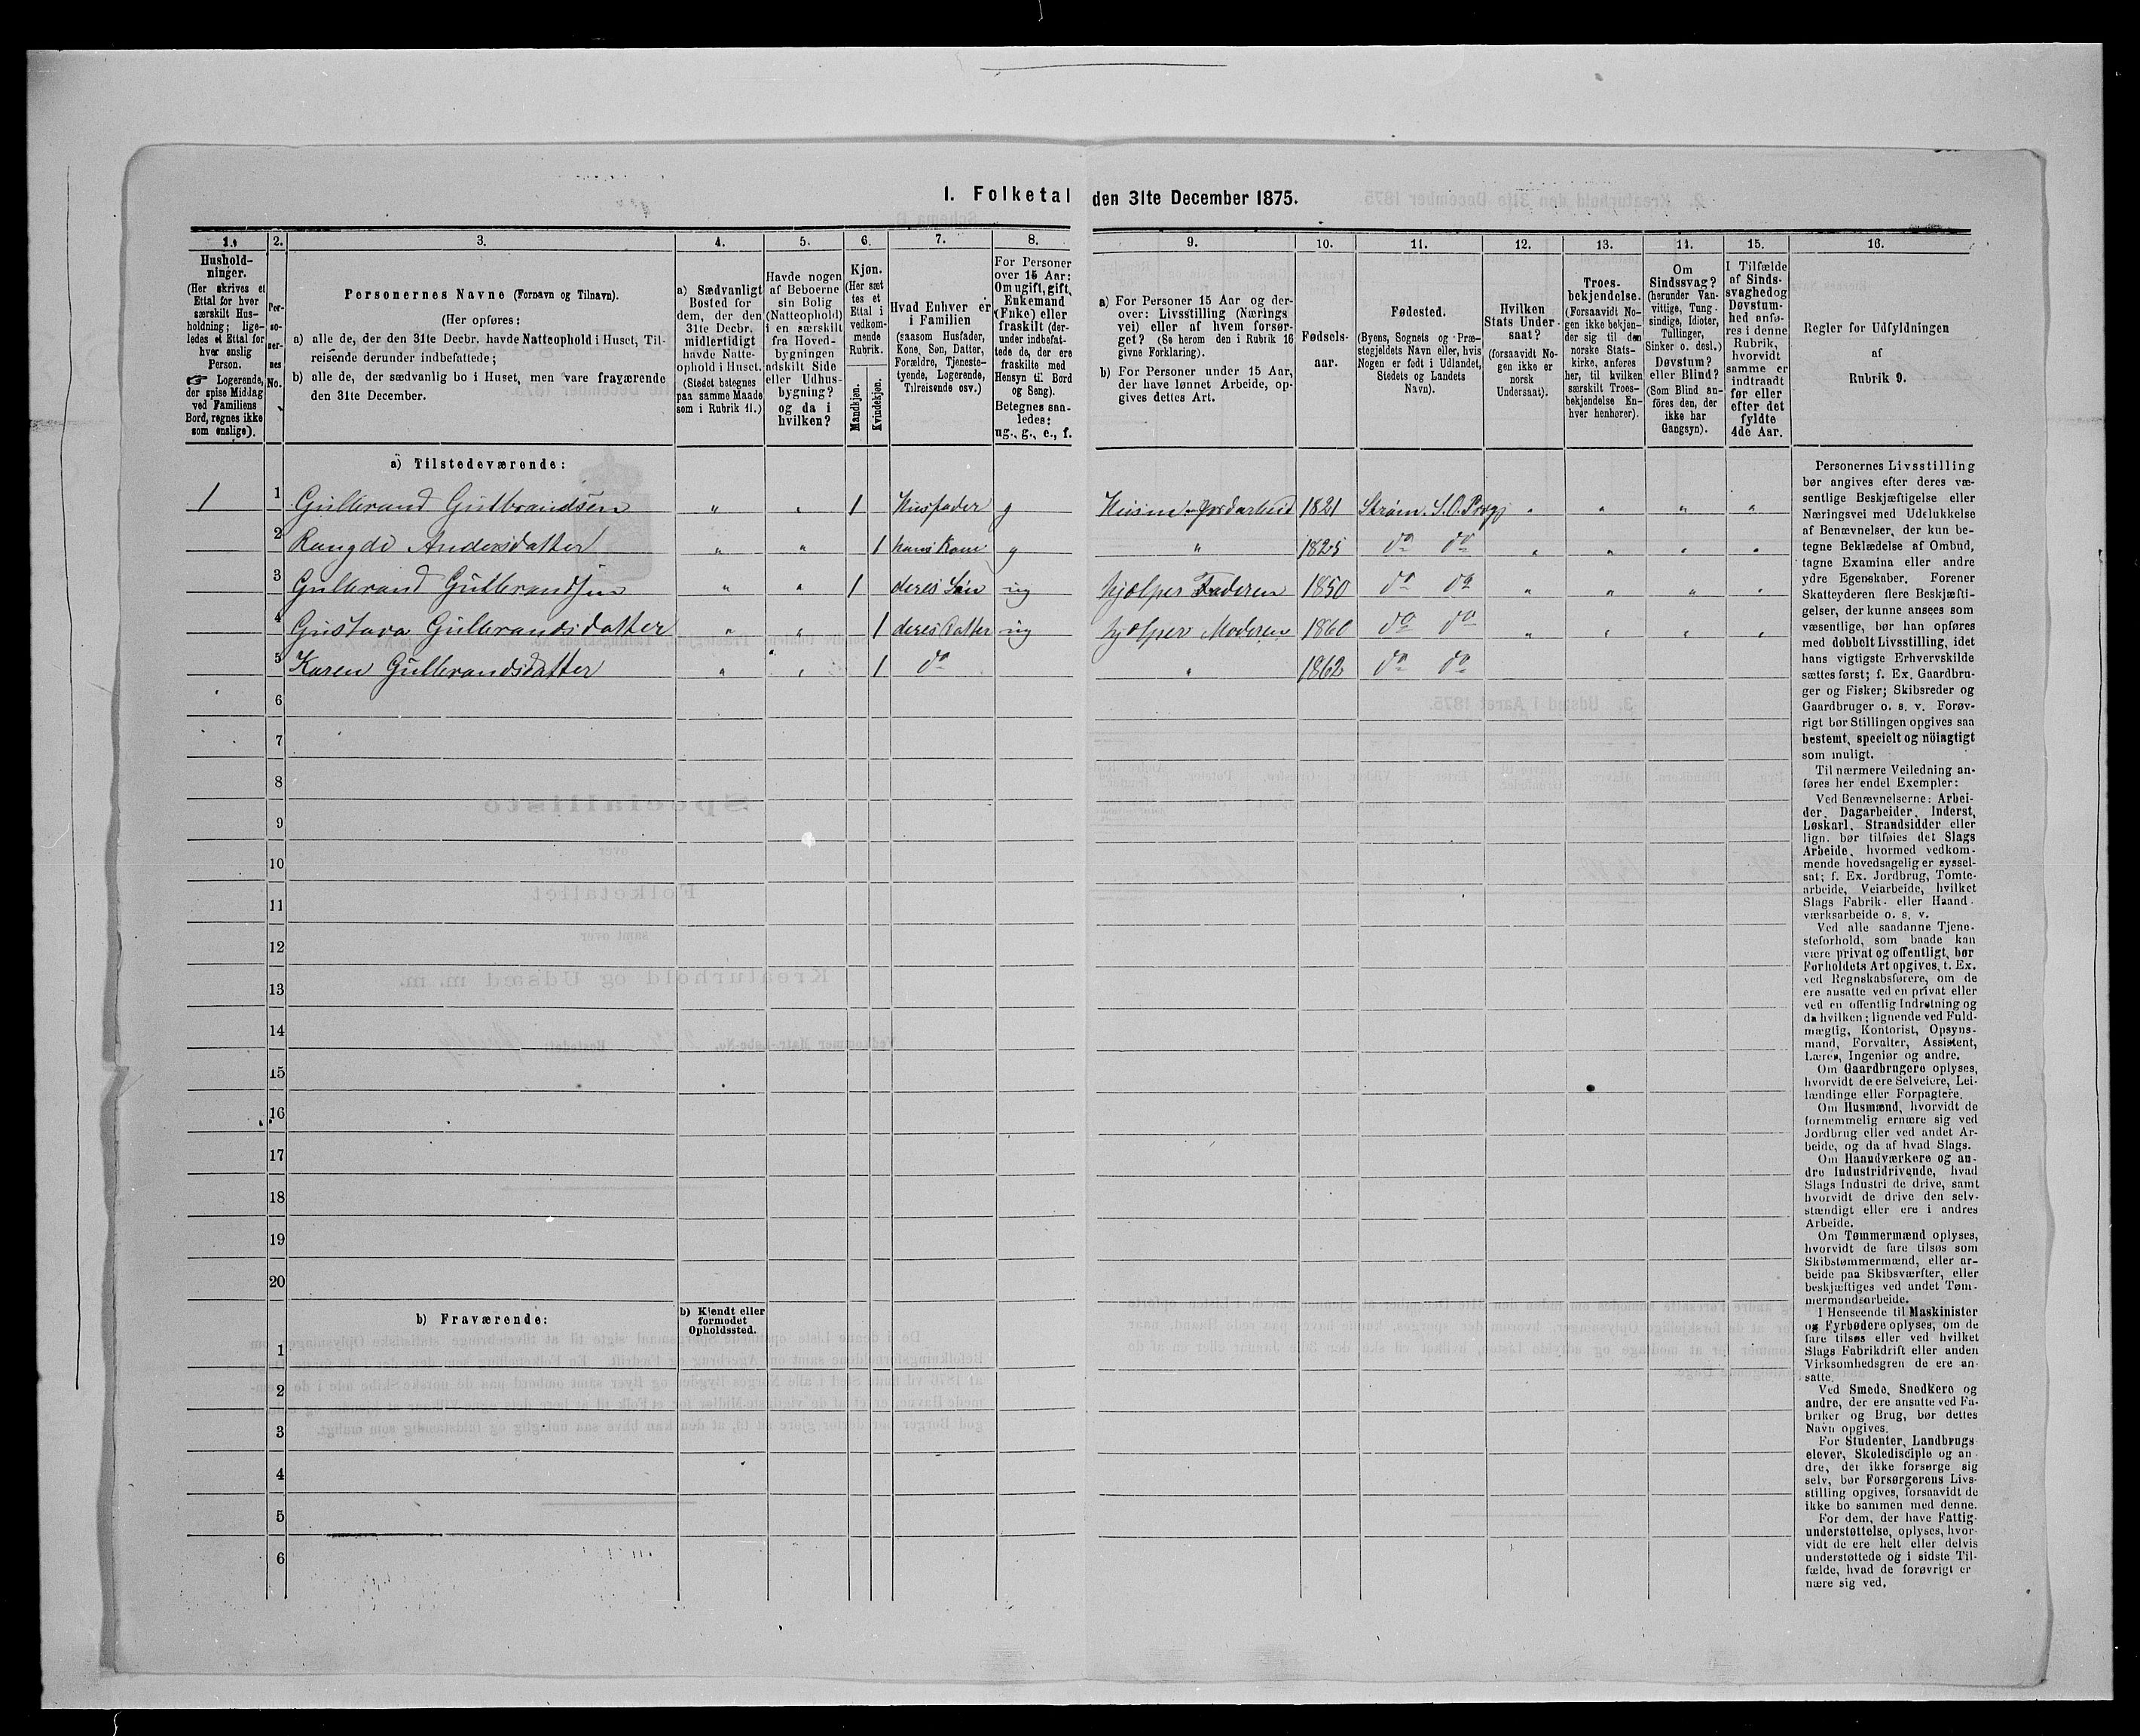 1. Folketal den 31te December 1875.
1. 2. 3. 4. 5. 6. 7. 8. 9. 10. 11. 12. 13. 14. 15. 16.
Hushold-
ninger.
(Her skrives et
Ettal for hver
særskilt Hus-
holdning; lige-
ledes et Ettal for
hver enslig
Person.
☞ Logerende,
der spise Middag
ved Familiens
Bord, regnes ikke
som enslige).
Per-
so-
ner-
nes
No.
Personernes Navne (Fornavn og Tilnavn).
(Her opføres:
a) alle de, der den 31te Decbr. havde Natteophold i Huset, Til-
reisende derunder indbefattede;
b) alle de, der sædvanlig bo i Huset, men vare fraværende
den 31te December.
a) Sædvanligt
Bosted for
dem, der den
31te Decbr.
midlertidigt
havde Natte-
ophold i Huset.
(Stedet betegnes
paa samme Maade
som i Rubrik 11.)
Havde nogen
af Beboerne
sin Bolig
(Natteophold)
i en særskilt
fra Hoved-
bygningen
adskilt Side
eller Udhus-
bygning?
og da i
hvilken?
Kjøn.
(Her sæt
tes et
Ettal i
vedkom-
mende
Rubrik.
Mandkjøn.
Kvindekjøn.
Hvad Enhver er
i Familien
(saasom Husfader,
Kone, Søn, Datter,
Forældre, Tjeneste-
tyende, Logerende,
Tilreisende osv.)
For Personer
over 15 Aar:
Om ugift, gift,
Enkemand
(Enke) eller
fraskilt (der-
under indbefat-
tede de, der ere
fraskilte med
Hensyn til Bord
og Seng).
Betegnes saa-
ledes:
ug., g., e., f.
a) For Personer 15 Aar og der-
over: Livsstilling (Nærings
vei) eller af hvem forsør-
get? (Se herom den i Rubrik 16
givne Forklaring).
b) For Personer under 15 Aar,
der have lønnet Arbeide, op-
gives dettes Art.
Fødsels-
aar.
Fødested.
(Byens, Sognets og Præ-
stegjeldets Navn eller, hvis
Nogen er født i Udlandet,
Stedets og Landets
Navn).
Hvilken
Stats Under-
saat?
(forsaavidt No-
gen ikke er
norsk
Undersaat).
Troes-
bekjendelse.
(Forsaavidt No-
gen ikke bekjen-
der sig til den
norske Stats-
kirke, anføres
her, til hvilken
særskilt Troes-
bekjendelse En-
hver henhører).
Om
Sindssvag?
(herunder Van-
vittige, Tung-
sindige, Idioter,
Tullinger,
Sinker o. desl.)
Døvstum?
eller Blind?
(Som Blind an-
føres den, der
ikke har
Gangsyn).
I Tilfælde
af Sinds-
svaghed og
Døvstum-
hed anfø-
res i denne
Rubrik,
hvorvidt
samme er
indtraadt
før eller
efter det
fyldte
4de Aar.
Regler for Udfyldningen
af
Rubrik 9.
a) Tilstedeværende:
1 1 Gulbrand Gulbrandsen " " 1 Husfader g Husm. Jordarbeid 1821 Strøm. S.O. Prgj " " " "
2 Rangdi Andersdatter " " 1 hans Kone g " 1825 do do " " " "
3 Gulbrand Gulbrandsen " " 1 deres Søn ug hjælper Faderen 1850 do do " " " "
4 Gustava Gulbrandsdatter " " 1 deres Datter ug hjelper Moderen 1860 do do " " " "
5 Karen Gulbrandsdatter " " 1 do " 1862 do do
6
7
8
9
10
11
12
13
14
15
16
17
18
19
20
b) Fraværende:
b) Kjendt eller
formodet
Opholdssted.
1
2
3
4
5
6
Personernes Livsstilling
bør angives efter deres væ-
sentlige Beskjæftigelse eller
Næringsvei med Udelukkelse
af Benævnelser, der kun be-
tegne Beklædelse af Ombud,
tagne Examina eller andre
ydre Egenskaber. Forener
Skatteyderen flere Beskjæfti-
gelser, der kunne ansees som
væsentlige, bør han opføres
med dobbelt Livsstilling, idet
hans vigtigste Erhvervskilde
sættes først; f. Ex. Gaardbru-
ger og Fisker; Skibsreder og
Gaardbruger o. s. v. Forøv-
rigt bør Stillingen opgives saa
bestemt, specielt og nöiagtigt
som muligt.
Til nærmere Veiledning an-
føres her endel Exempler:
Ved Benævnelserne: Arbei-
der, Dagarbeider, Inderst,
Løskarl, Strandsidder eller
lign. bør tilføies det Slags
Arbeide, hvormed vedkom-
mende hovedsagelig er syssel-
sat; f. Ex. Jordbrug, Tomte-
arbeide, Veiarbeide, hvilket
Slags Fabrik- eller Haand-
værksarbeide o. s. v.
Ved alle saadanne Tjene-
steforhold, som baade kan
være privat og offentligt, bør
Forholdets Art opgives, f. Ex.
ved Regnskabsførere, om de
ere ansatte ved en privat eller
ved en offentlig Indretning og
da hvilken; lignende ved Fuld-
mægtig, Kontorist, Opsyns-
mand, Forvalter, Assistent,
Lærer, Ingeniør og andre.
Om Gaardbrugere oplyses,
hvorvidt de ere Selveiere, Lei-
lændinge eller Forpagtere.
Om Husmænd, hvorvidt de
fornemmelig ernære sig ved
Jordbrug eller ved andet Ar-
beide, og da af hvad Slags.
Om Haandværkere og an-
dre Industridrivende, hvad
Slags Industri de drive, samt
hvorvidt de drive den selv-
stændigt eller ere i andres
Arbeide.
Om Tømmermænd oplyses,
hvorvidt de fare tilsøs som
Skibstømmermænd, eller ar-
beide paa Skibsværfter, eller
beskjæftiges ved andet Tøm-
mermandsarbeide.
I Henseende til Maskinister
og Fyrbødere oplyses, om de
fare tilsøs eller ved hvilket
Slags Fabrikdrift eller anden
Virksomhedsgren de ere an-
satte.
Ved Smede, Snedkere og
andre, der ere ansatte ved Fa-
briker og Brug, bør dettes
Navn opgives.
For Studenter, Landbrugs
elever, Skoledisciple og an-
dre, der ikke forsørge sig
selv, bør Forsørgerens Livs-
stilling opgives, forsaavidt de
ikke bo sammen med denne.
For dem, der have Fattig-
understøttelse, oplyses, hvor-
vidt de ere helt eller delvis
understøttede og i sidste Til-
fælde, hvad de forøvrigt er
nære sig ved.